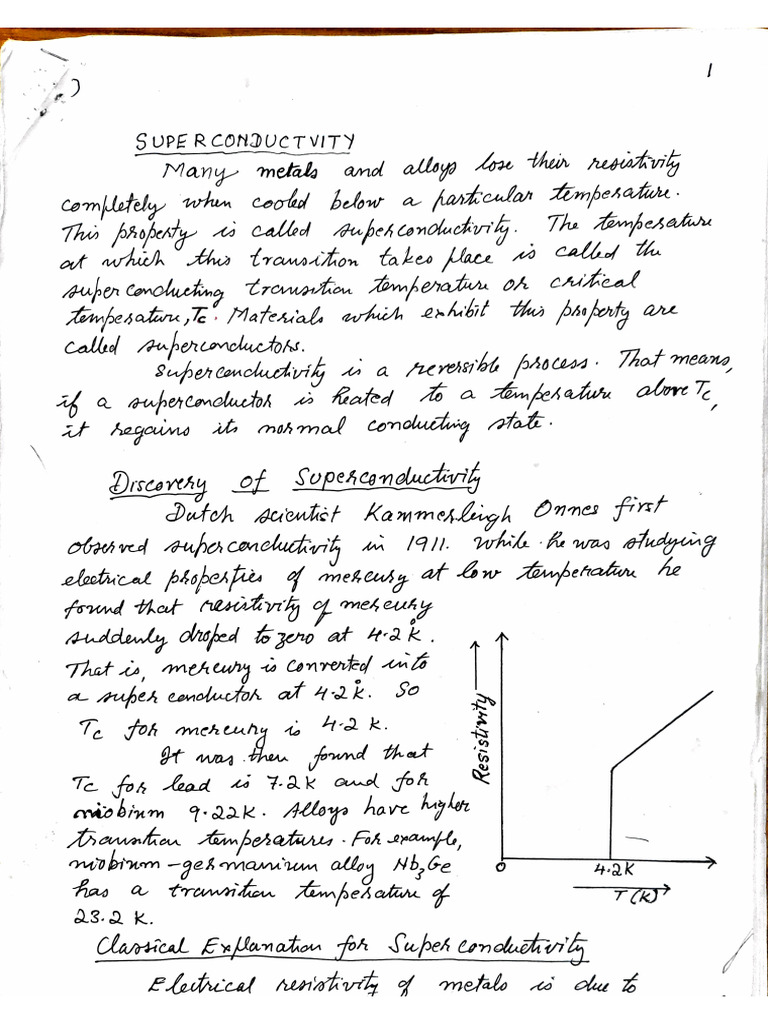 1
SUPERCONDUCTVITY
Many metals and alloys lose their resistivity
completely when cooled below a particular temperature.
This property is called superconductivity. The temperature
at which this transition takes place is called the
superconducting transition temperature or critical
temperature, Tc. Materials which exhibit this property are
called superconductors.
Superconductivity is a reversible process. That means,
if a superconductor is heated to a temperature above Tc,
it regains its normal conducting state.
Discovery of Superconductivity
Dutch scientist Kammerleigh Onnes first
observed superconductivity in 1911. While he was studying
electrical properties of mercury at low temperature he
found that resistivity of mercury
suddenly droped to zero at 4.2°K.
That is, mercury is converted into
a super conductor at 4.2°K. So
Tc for mercury is 4.2 K.
It was then found that
Tc for lead is 7.2K and for
niobium 9.22K. Alloys have higher
transition temperatures. For example,
niobium-germanium alloy Nb3Ge
has a transition temperature of
23.2 K.
Resistivity
0
4.2K
T(K)
Classical Explanation for Superconductivity
Electrical resistivity of metals is due to